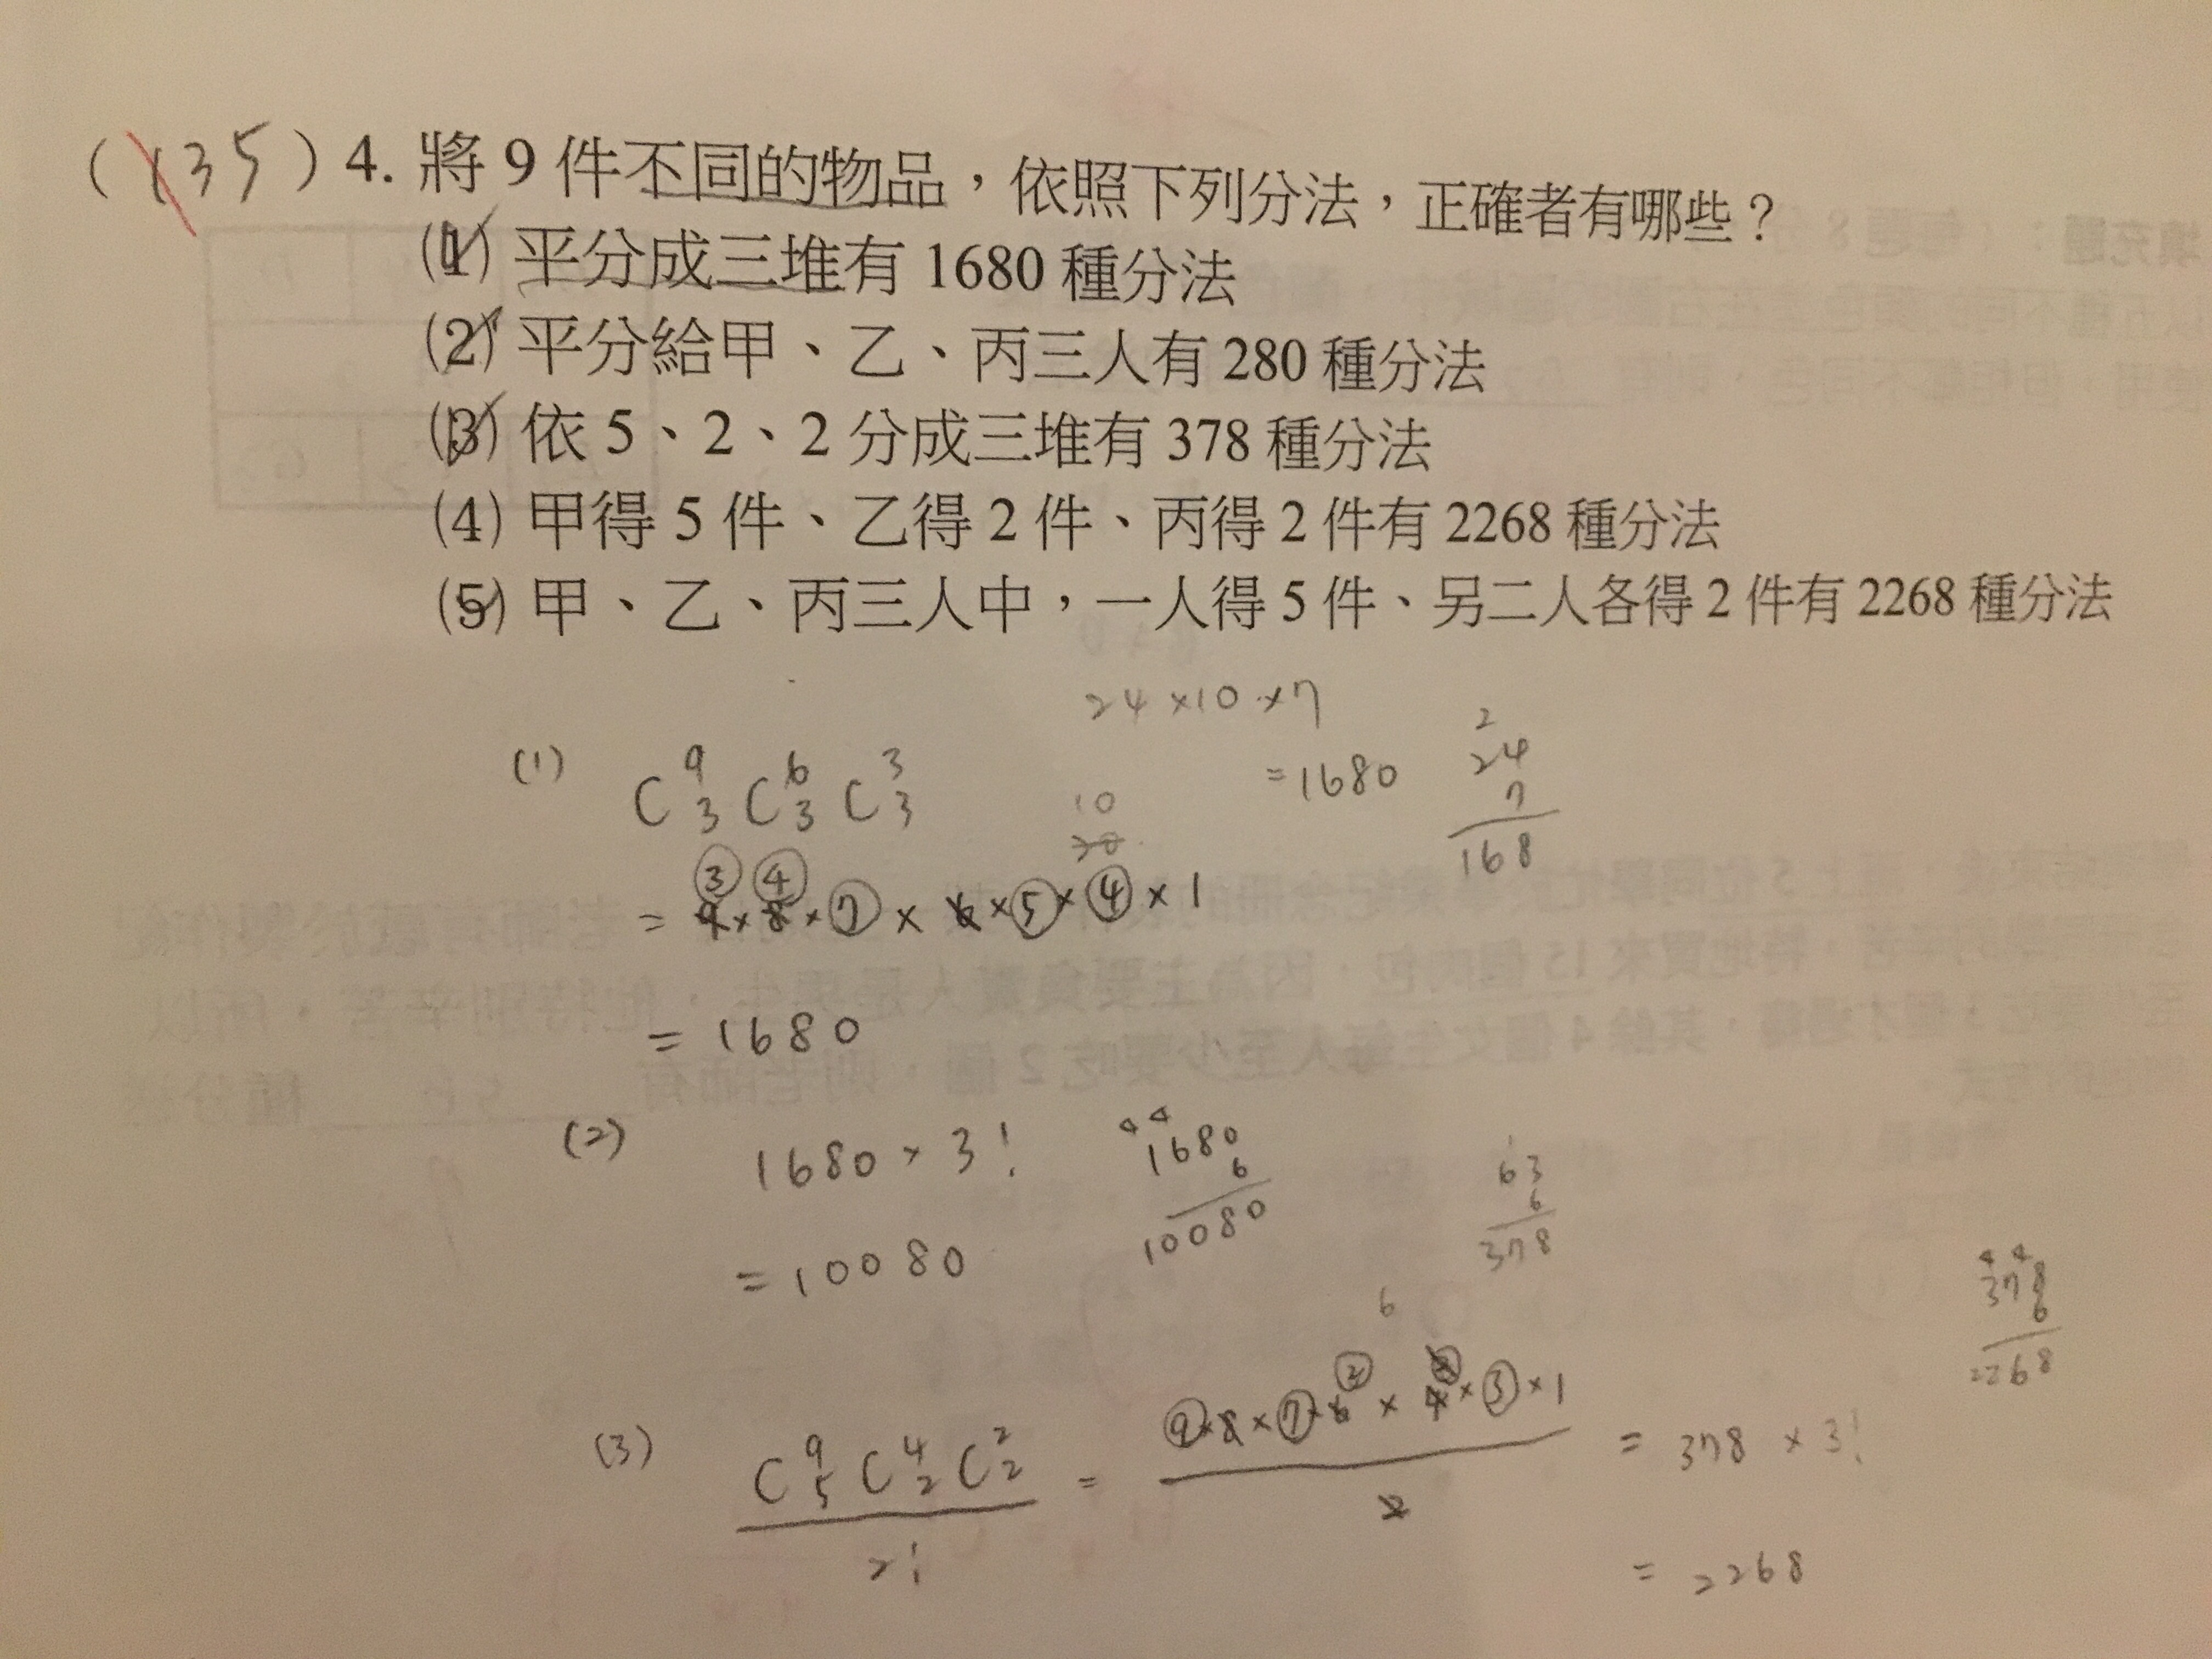 (135) 4. 將 9 件不同的物品，依照下列分法，正確者有哪些？
(1) 平分成三堆有 1680 種分法
(2) 平分給甲、乙、丙三人有 280 種分法
(3) 依 5、2、2 分成三堆有 378 種分法
(4) 甲得 5 件、乙得 2 件、丙得 2 件有 2268 種分法
(5) 甲、乙、丙三人中，一人得 5 件、另二人各得 2 件有 2268 種分法
24 × 10 × 7
= 1680
2
24
7
168
(1) C 9 3 C 6 3 C 3 3
10
20
3 4
= 9 × 8 × 7 × 6 × 5 × 4 × 1
= 1680
(2) 1680 × 3!
= 10080
4 4
1680
6
10080
1
63
6
378
4 4
378
6
2268
6
(3) C 9 5 C 4 2 C 2 2
2!
= 9 × 8 × 7 × 6 × 4 × 3 × 1
2
= 378 × 3!
= 2268